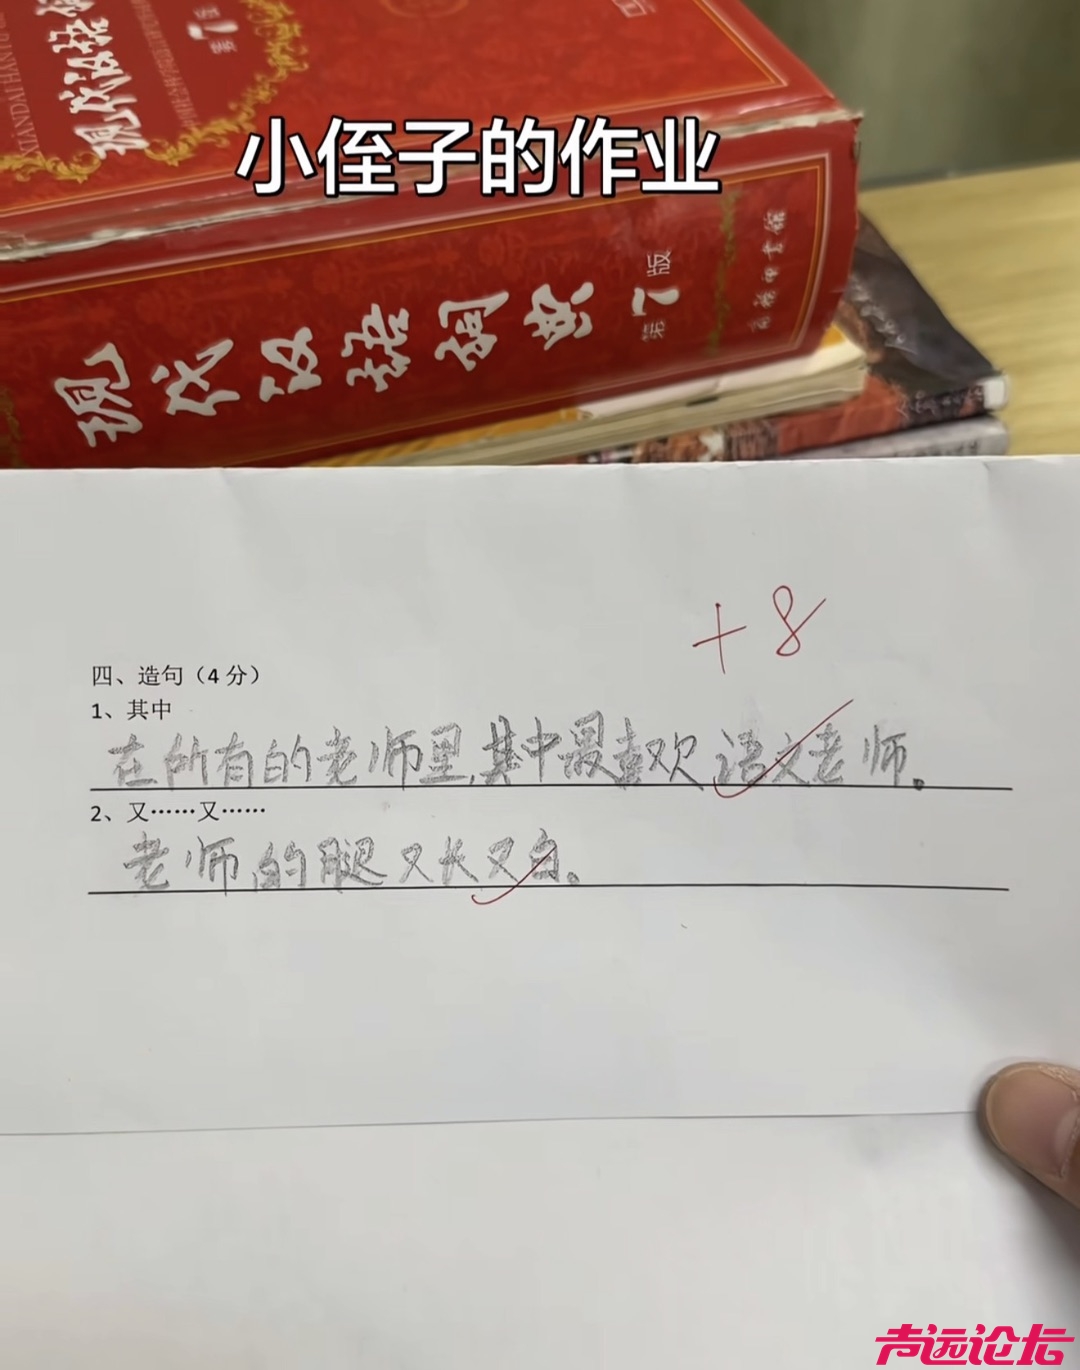 现代汉语词
XIANDAI HANYU
第7版
小侄子的作业
现代汉语词典
第7版
商务印书馆
+8
四、造句（4 分）
1、其中
在所有的老师里,其中最喜欢语文老师。
2、又……又……
老师的腿又长又白。
声远论坛